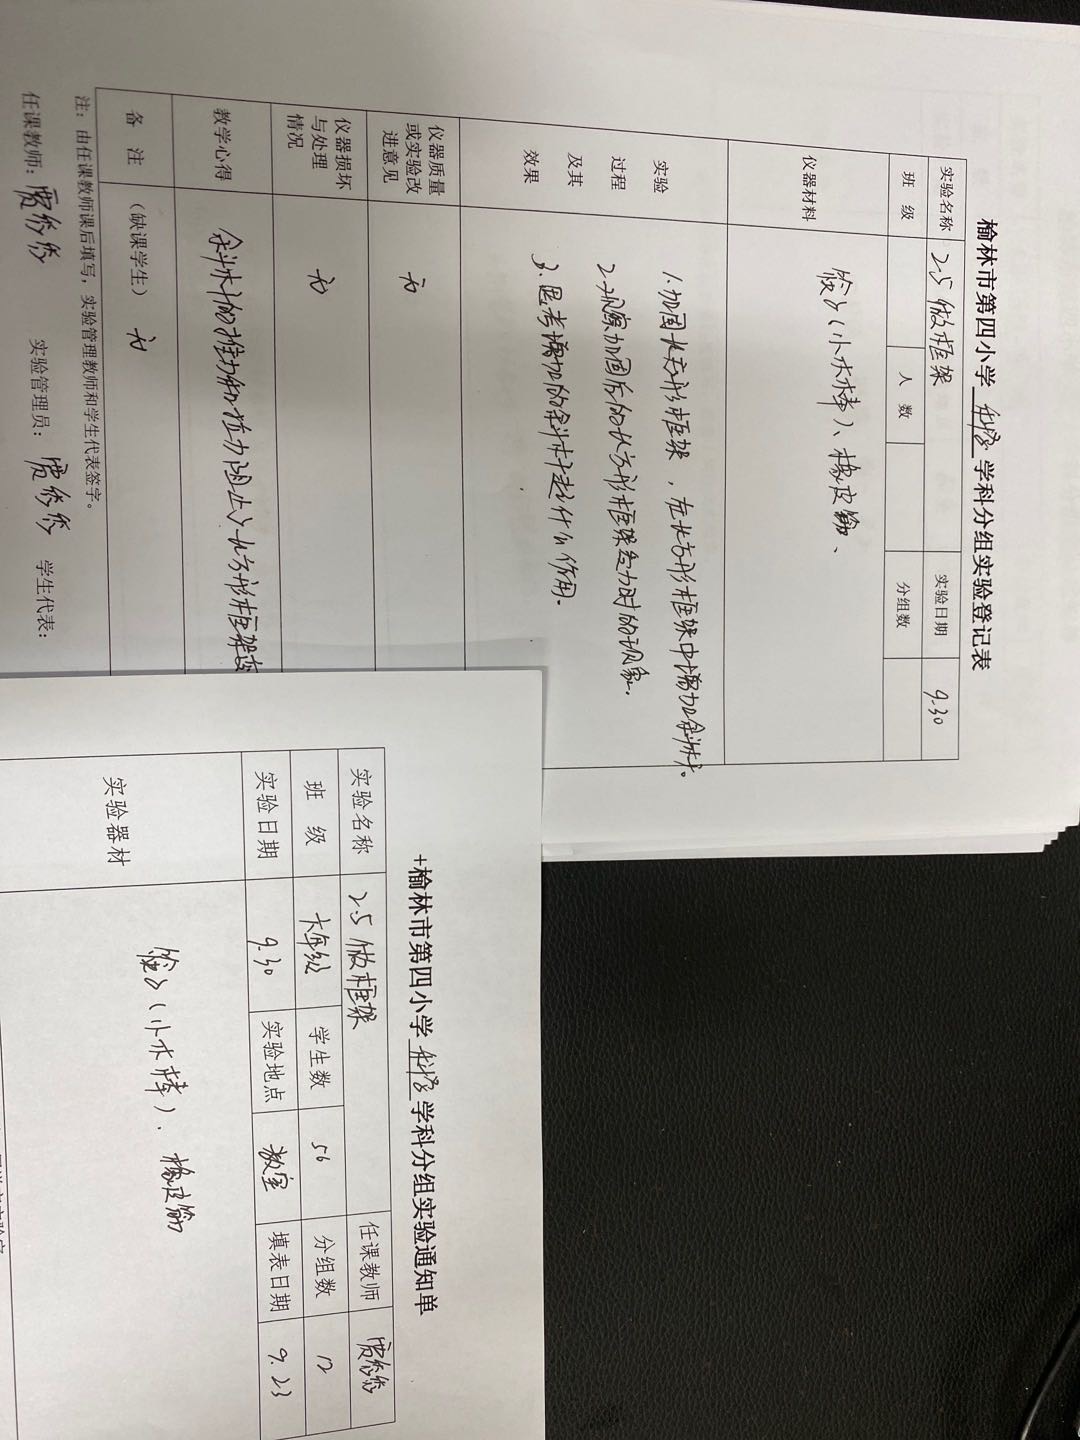 榆林市第四小学 科学 学科分组实验登记表
实验名称 2.5 做框架 实验日期 9.30
班 级 人 数 分组数
仪器材料 签子(小木棒)、橡皮筋、
实验
过程
及其
效果
1.加固长方形框架,在长方形框架中增加斜杆。
2.观察加固后的长方形框架受力时的现象.
3.思考增加的斜杆起什么作用.
仪器质量
或实验改
进意见
无
仪器损坏
与处理
情况
无
教学心得 斜杆的推力和拉力阻止了长方形框架变
备 注 (缺课学生) 无
注:由任课教师课后填写,实验管理教师和学生代表签字。
任课教师: 实验管理员: 学生代表:
+榆林市第四小学 科学 学科分组实验通知单
实验名称 2.5 做框架 任课教师
班 级 六年级 学生数 56 分组数 12
实验日期 9.30 实验地点 教室 填表日期 9.23
实验器材 签子(小木棒)、橡皮筋